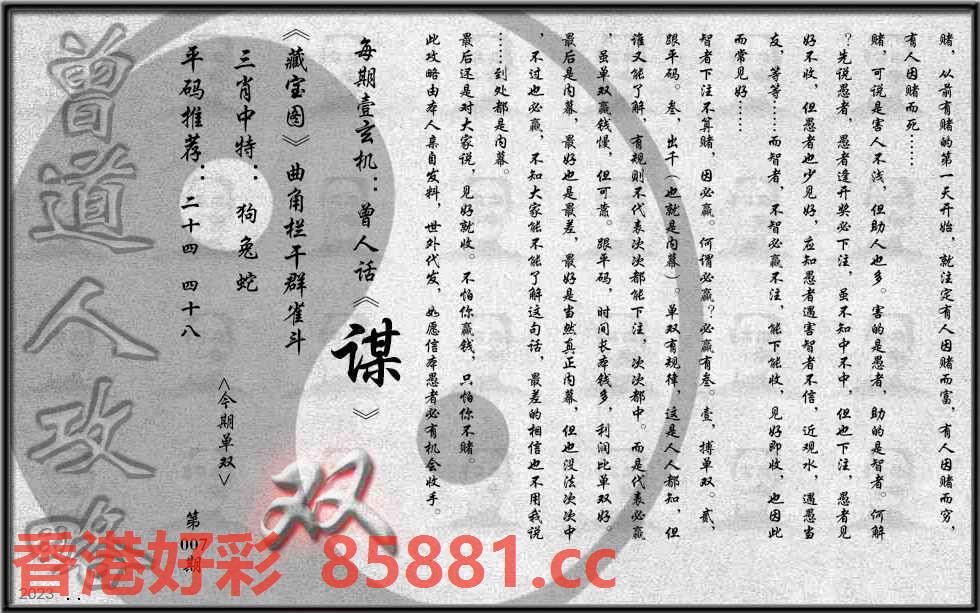 赌，从前有赌的第一天开始，就注定有人因赌而富，有人因赌而穷，
有人因赌而死……
赌，可说是害人不浅，但助人也多。害的是愚者，助的是智者。何解
？先说愚者，愚者逢开奖必下注，虽不知中不中，但也下注，愚者见
好不收，但愚者也少见好，应知愚者遇害智者不信，近观水，遇愚当
友，等等……而智者，不智必赢不注，能下能收，见好即收，也因此
而常见好……
智者下注不算赌，因必赢。何谓必赢？必赢有叁。壹，搏单双。贰，
跟平码。叁，出千（也就是内幕）。单双有规律，这是人人都知，但
谁又能了解，有规则不代表次次都能下注，次次都中。而是代表必赢
，虽单双赢钱慢，但可靠。跟平码，时间长本钱多，利润比单双好。
最后是内幕，最好也是最差，最好是当然真正内幕，但也没法次次中
，不过也必赢，不知大家能不能了解这句话，最差的相信也不用我说
……到处都是内幕。
最后还是对大家说，见好就收。不怕你赢钱，只怕你不赌。
此攻略由本人亲自发料，世外代发，如愿信本愚者必有机会收手。
每期壹玄机：曾人话《谋》
《藏宝图》曲角栏干群雀斗
三肖中特：狗兔蛇
<今期单双>
双
平码推荐：二十四 四十八
第007期
曾道人攻略
香港好彩 85881.cc
2023